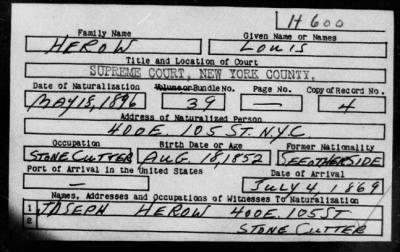 H 600
Family Name Given Name or Names
HEROW LOUIS
Title and Location of Court
SUPREME COURT, NEW YORK COUNTY.
Date of Naturalization Volume or Bundle No. Page No. Copy of Record No.
MAY 18, 1896 39 — 4
Address of Naturalized Person
400 E. 105 ST. N.Y.C
Occupation Birth Date or Age Former Nationality
STONE CUTTER AUG. 18, 1852 SEE OTHER SIDE
Port of Arrival in the United States Date of Arrival
— JULY 4, 1869
Names, Addresses and Occupations of Witnesses To Naturalization
1 JOSEPH HEROW 400 E. 105 ST
2 STONE CUTTER